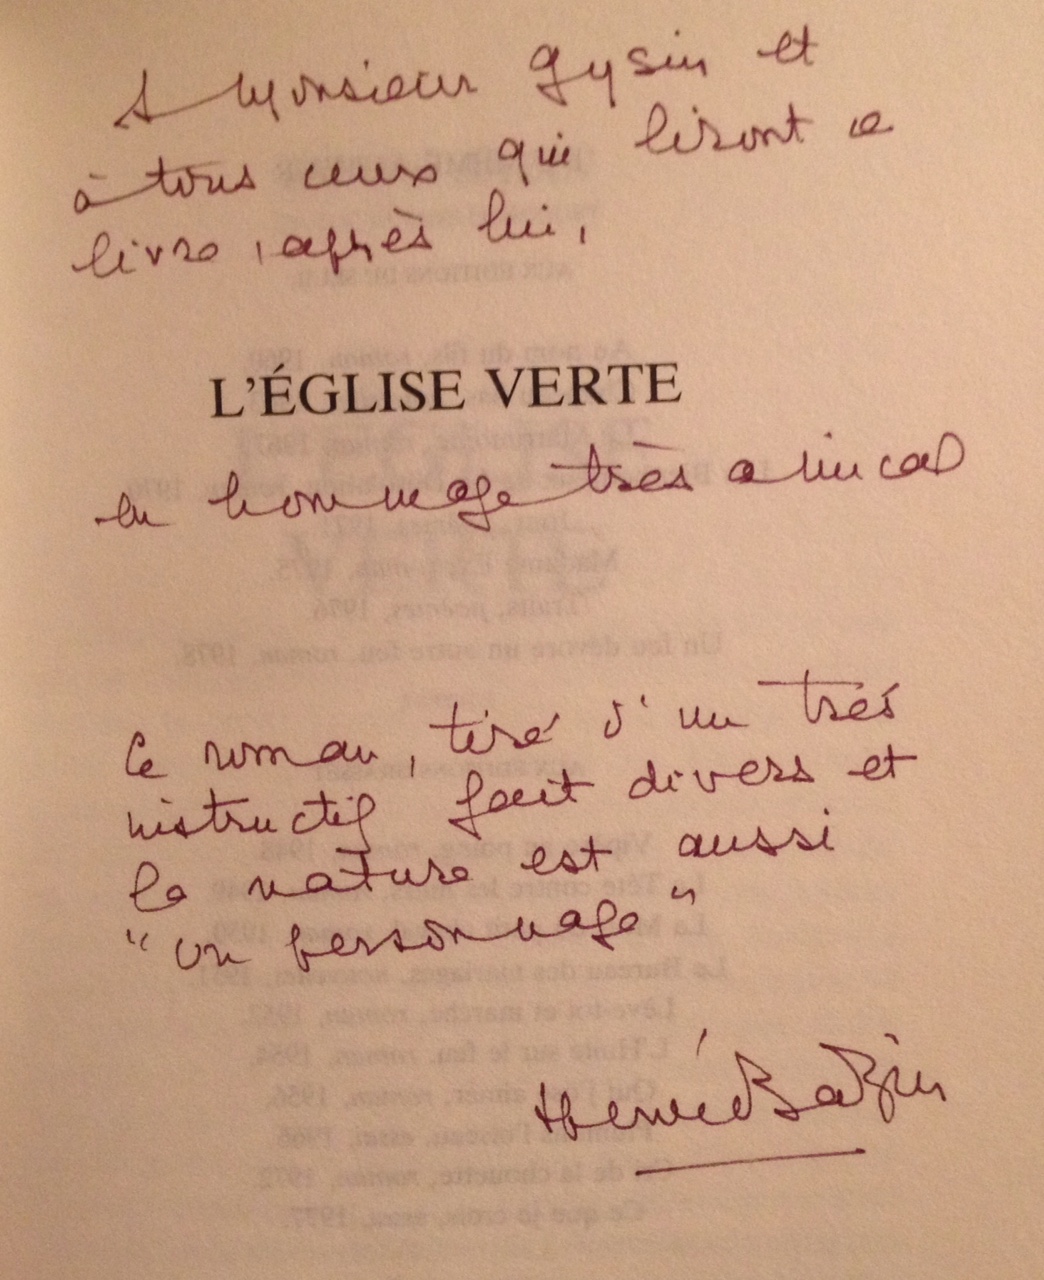 A Monsieur Gysin et
à tous ceux qui liront ce
livre, après lui,
L'ÉGLISE VERTE
en hommage très amical
Ce roman, tiré d'un très
instructif fait divers et
la nature est aussi
"un personnage"
Hervé Bazin